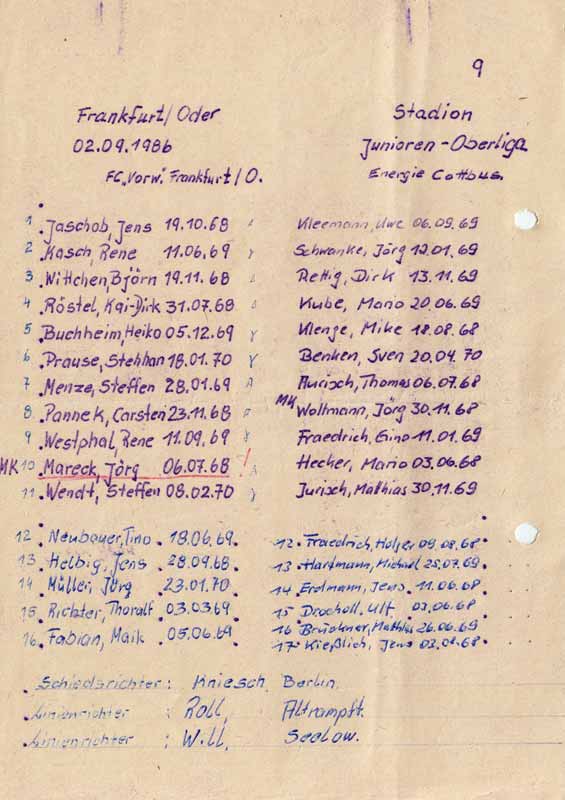 9
Frankfurt/Oder Stadion
02.09.1986 Junioren-Oberliga
FC „Vorw." Frankfurt/O. Energie Cottbus.
1 Jaschob, Jens 19.10.68 Kleemann, Uwe 06.09.69
2 Kasch, Rene 11.06.69 Schwanke, Jörg 12.01.69
3 Wittchen, Björn 19.11.68 Rettig, Dirk 13.11.69
4 Röstel, Kai-Dirk 31.07.68 Kube, Mario 20.06.69
5 Buchheim, Heiko 05.12.69 Klenge, Mike 18.08.68
6. Prause, Stephan 18.01.70 Benken, Sven 20.04.70
7 Menze, Steffen 28.01.69 Aurisch, Thomas 06.07.68
8. Pannek, Carsten 23.11.68 MK Woltmann, Jörg 30.11.68
9 Westphal, Rene 11.09.69 Fraedrich, Gino 11.01.69
MK 10 Mareck, Jörg 06.07.68 ! Hecker, Mario 03.06.68
11. Wendt, Steffen 08.02.70 Jurisch, Mathias 30.11.69
12 Neubauer, Tino 18.06.69. 12. Fraedrich, Holger 09.08.68
13 Helbig, Jens 28.09.68 13 Hartmann, Michael 25.07.69
14 Müller, Jörg 23.01.70 14 Erdmann, Jens 11.06.68
15 Richter, Thoralf 03.03.69 15 Drocholl, Ulf 03.06.68
16. Fabian, Maik 05.06.69 16 Brückner, Matthias 26.06.69
17 Kießlich, Jens
Schiedsrichter: Kniesch, Berlin.
Linienrichter : Roll, Altrampft.
Linienrichter : Will, Seelow.